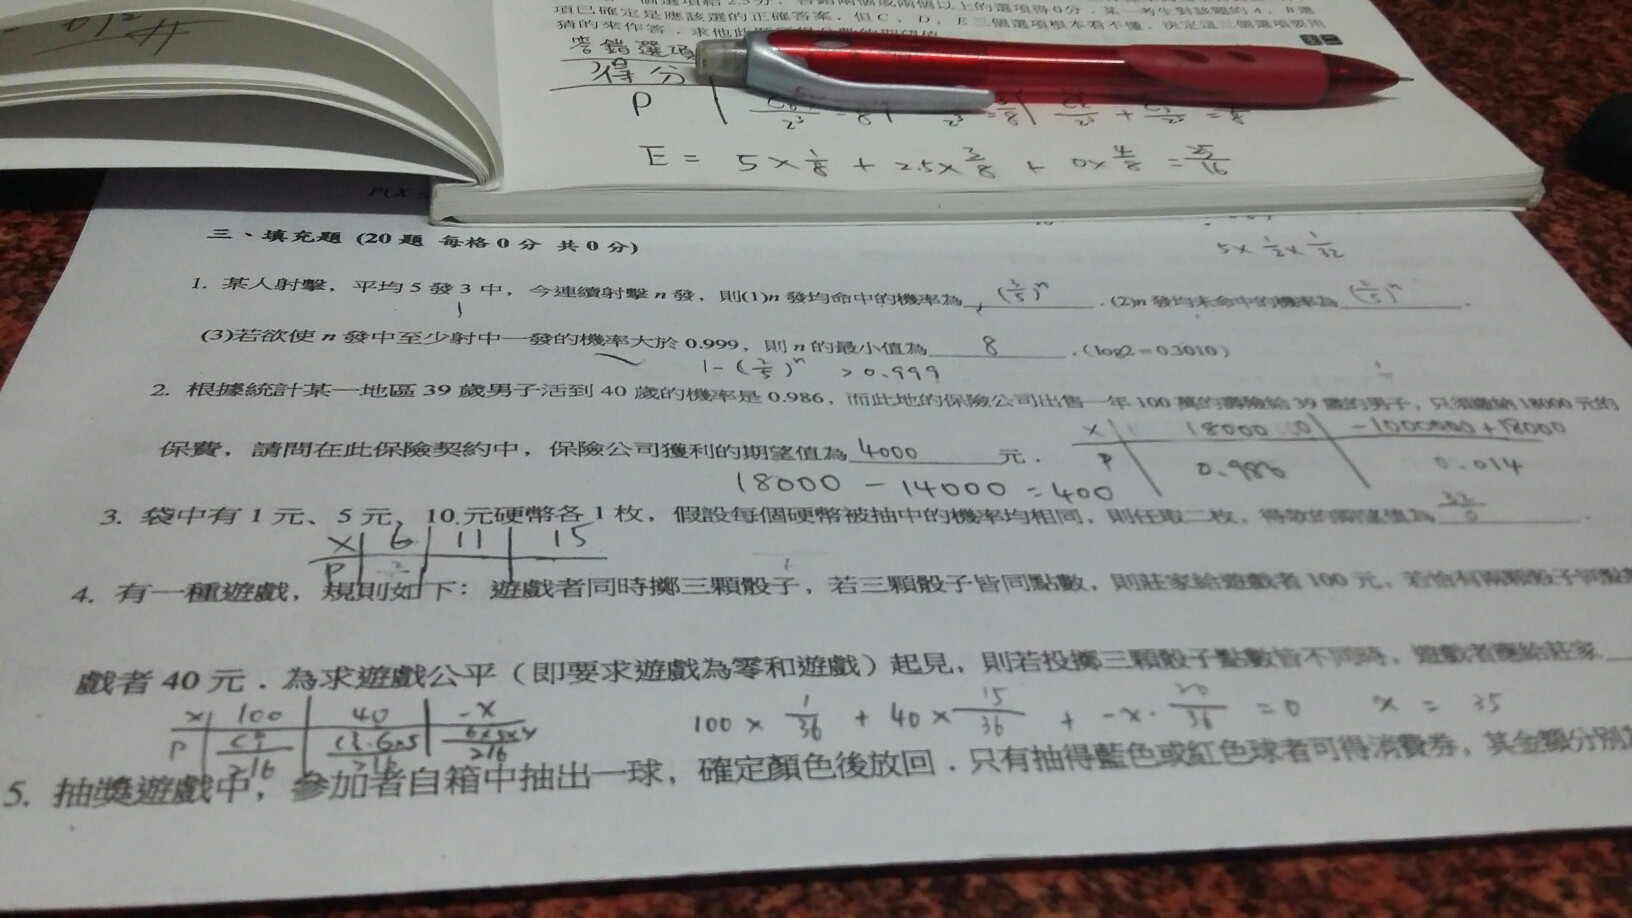 個選項給2.5分,答錯兩個或兩個以上的選項得0分.某一考生對該題的A,B選
項已確定是應該選的正確答案,但C,D,E三個選項根本看不懂,決定這三個選項要用
猜的來作答.求他此題
答錯選項
得分
P
E = 5×1/8 + 2.5×3/8 + 0×4/8 = 25/16
P(X
三、填充題 (20題 每格0分 共0分)
5×1/2×1/32
1. 某人射擊,平均5發3中,今連續射擊n發,則(1)n發均命中的機率為 (3/5)^n .(2)n發均未命中的機率為 (2/5)^n .
(3)若欲使n發中至少射中一發的機率大於0.999,則n的最小值為 8 .(log2=0.3010)
1-(2/5)^n >0.999
2. 根據統計某一地區39歲男子活到40歲的機率是0.986,而此地的保險公司出售一年100萬的壽險給39歲的男子,只須繳納18000元的
保費,請問在此保險契約中,保險公司獲利的期望值為 4000 元.
X 18000 -1000000+18000
P 0.986 0.014
18000 - 14000 = 400
3. 袋中有1元、5元、10元硬幣各1枚,假設每個硬幣被抽中的機率均相同,則任取二枚,得款的期望值為 32/3 .
X 6 11 15
P
4. 有一種遊戲,規則如下:遊戲者同時擲三顆骰子,若三顆骰子皆同點數,則莊家給遊戲者100元,若恰有兩顆骰子同點
戲者40元.為求遊戲公平(即要求遊戲為零和遊戲)起見,則若投擲三顆骰子點數皆不同時,遊戲者應給莊家
X 100 40 -X
P 216 216 6×5×4/216
100×1/36 + 40×15/36 + -x·20/36 =0 x = 35
5. 抽獎遊戲中,參加者自箱中抽出一球,確定顏色後放回.只有抽得藍色或紅色球者可得消費券,其金額分別